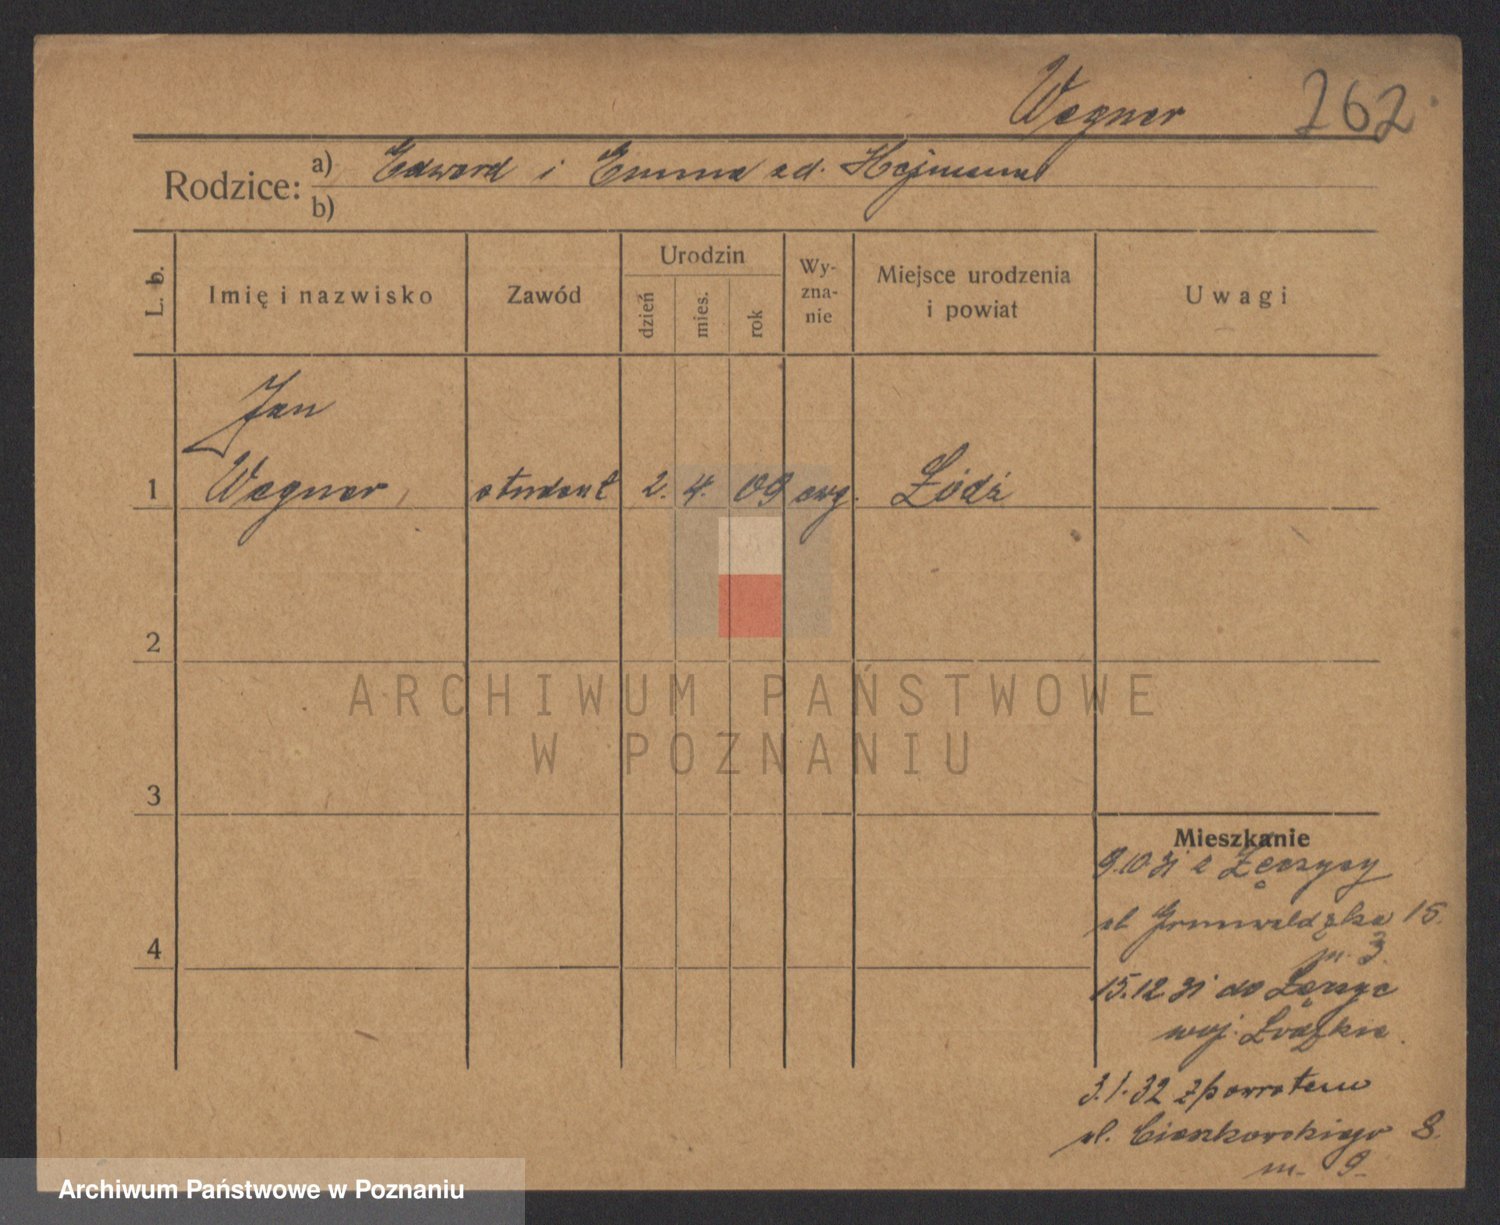 Wegner 262
Rodzice: a) Edward i Emma zd. Hajmann
b)
L. b.
Imię i nazwisko
Zawód
Urodzin
dzień
mies.
rok
Wy-
zna-
nie
Miejsce urodzenia
i powiat
Uwagi
Jan
1 Wegner, student 2. 4. 09 ewg. Łódź
2
ARCHIWUM PAŃSTWOWE
W POZNANIU
3
Mieszkanie
9.10.31 z Łęczycy
ul Grunwaldzka 15.
m. 3.
4
15.12.31 do
woj. Łódzkie.
3.1.32 zpowrotem
ul. Cieszkowskiego 8.
m. 9.
Archiwum Państwowe w Poznaniu